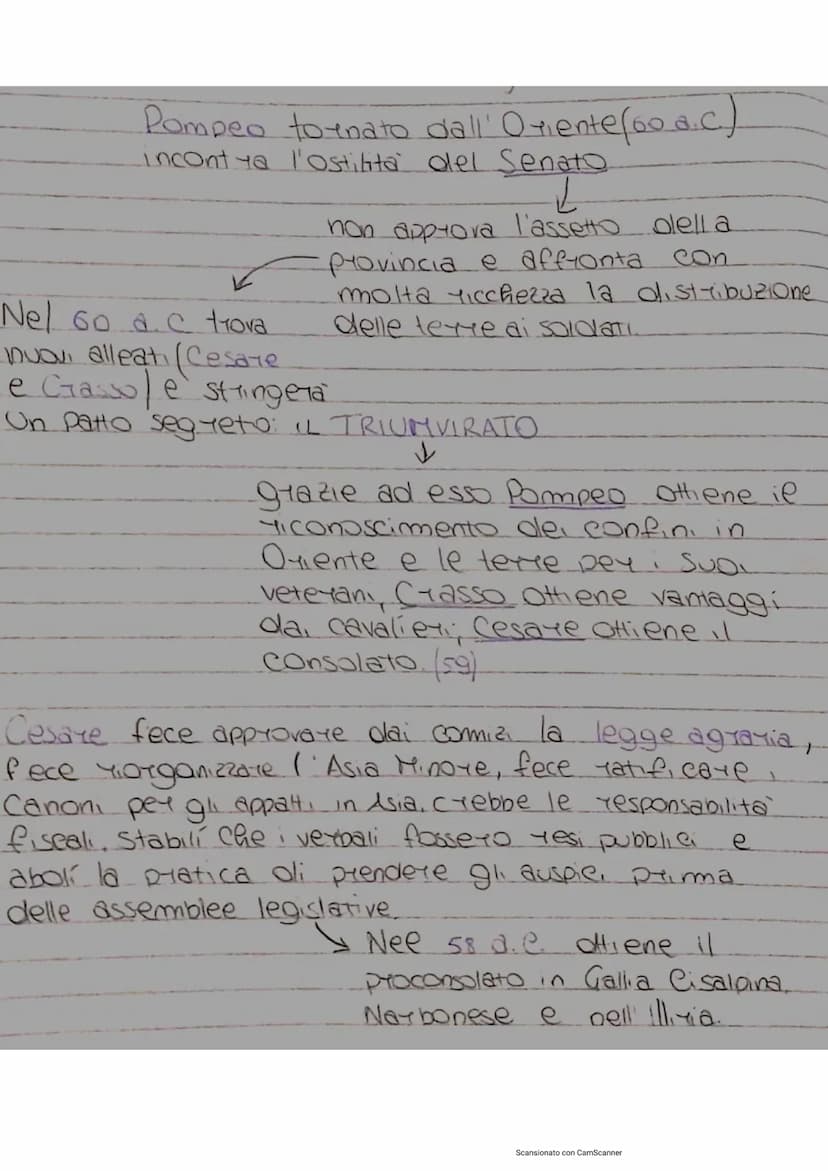 Pompeo tornato dall'Oriente (60 a.C)
incontra l'ostilità del Senato
non approva l'assetto della
provincia e affronta con
molta ricchezza la distribuzione
delle terre ai soldati.
Nel 60 a.C trova
nuovi alleati (Cesare
e Crasso) e stringerà
un patto segreto: IL TRIUMVIRATO
grazie ad esso Pompeo ottiene il
riconoscimento dei confini in
Oriente e le terre per i suoi
veterani, Crasso ottiene vantaggi
dai cavalieri; Cesare ottiene il
consolato. (59)
Cesare fece approvare dai comizi la legge agraria,
fece riorganizzare l'Asia Minore, fece ratificare i
canoni per gli appalti in Asia, crebbe le responsabilità
fiscali. Stabilí che i verbali fossero resi pubblici e
abolí la pratica di prendere gli auspici prima
delle assemblee legislative.
Nel 58 a.C. ottiene il
proconsolato in Gallia Cisalpina,
Narbonese e nell'Illiria.
Scansionato con CamScanner